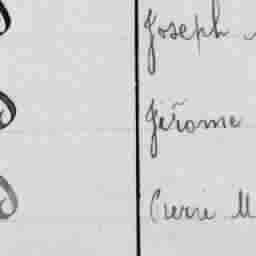 Joseph
Jérome
Pierre M